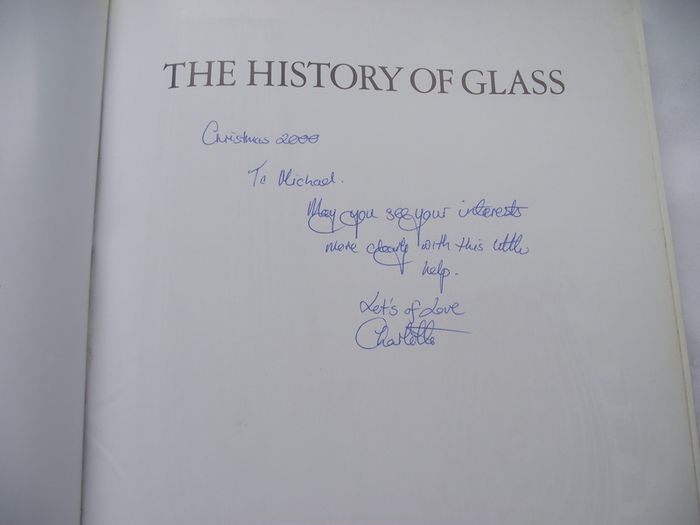 THE HISTORY OF GLASS
Christmas 2000
To Michael.
May you see your interests
more clearly with this little
help.
Let's of Love
Charlotte